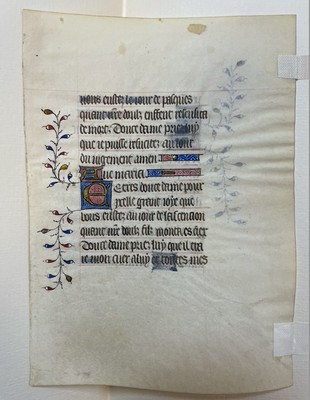 vous eustes le iour de pasques
quant vre doulz enffent resuscita
de mort. Douce dame priez luy
que ie puisse resusciter au iour
du iugement amen.
Aue maria.
E te doulce dame pour
icelle grant ioye que
vous eustes au iour de lascencion
quant vre doulz filz monta es cielx
Douce dame priez luy que il
ie mon cuer a luy de toutes mes